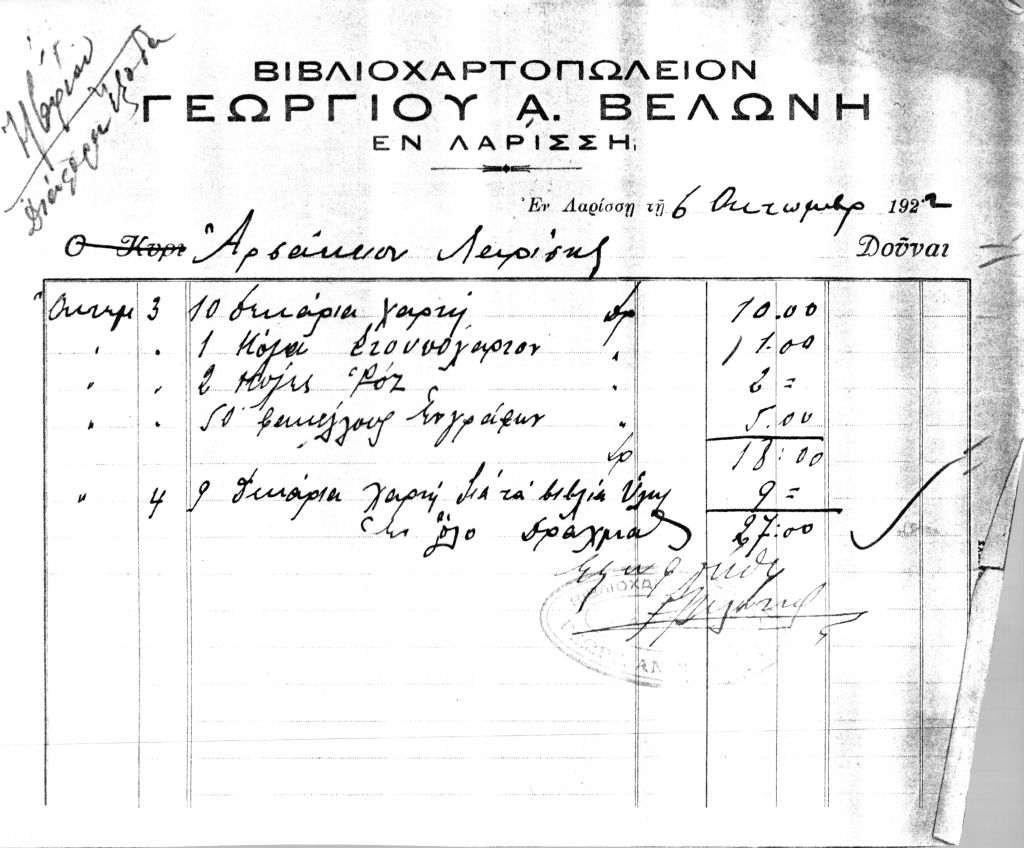 ΒΙΒΛΙΟΧΑΡΤΟΠΩΛΕΙΟΝ
ΓΕΩΡΓΙΟΥ Α. ΒΕΛΩΝΗ
ΕΝ ΛΑΡΙΣΣΗ
Ἐν Λαρίσσῃ τῇ 6 Οκτωμβρ 1922
Ο Κυρι Ἀρσάκειον Λαρίσης Δοῦναι
Οκτωμ 3 10 δεκάρια χαρτή δρ 10.00
" " 1 κόλα στουπόχαρτον " 1.00
" " 2 κόλες Ρόζ " 2 =
" " 50 φακέλλους Εγγράφων " 5.00
δρ 18:00
" 4 9 δεκάρια χαρτή διά τά βιβλία ύλης 9 =
Εν όλο δραχμας 27:00